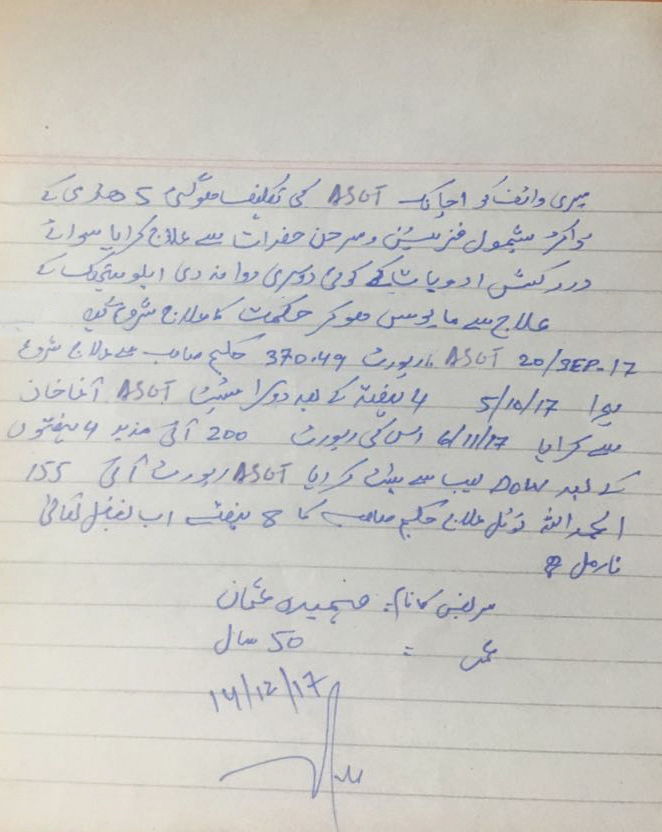 میری وائف کو اچانک ASOT کی تکلیف ہوگئی 5 ھڈی کے
ڈاکٹر بشمول فزیشن و سرجن حضرات سے علاج کرایا سوائے
درد کش ادویات کے کوئی دوسری دوا نہ دی ایلوپیتھک کے
علاج سے مایوس ہو کر حکمت کا علاج شروع کیا
20/SEP-17 ASOT رپورٹ 370.49 حکیم صاحب سے علاج شروع
ہوا 5/10/17 4 ہفتہ کے بعد دوسرا ٹیسٹ ASOT آغا خان
سے کرایا 6/11/17 اس کی رپورٹ 200 آئی مزید 4 ہفتوں
کے بعد DOW لیب سے ٹیسٹ کرایا ASOT رپورٹ آئی 155
الحمد اللہ ٹوٹل علاج حکیم صاحب کا 8 ہفتے اب بفضل تعالیٰ
نارمل ہے
مریض کا نام : فہمیدہ عثمان
عمر : 50 سال
14/12/17